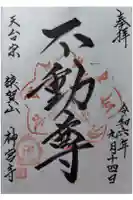 奉拝
令和六年九月十四日
不動尊
天台宗
神宮寺